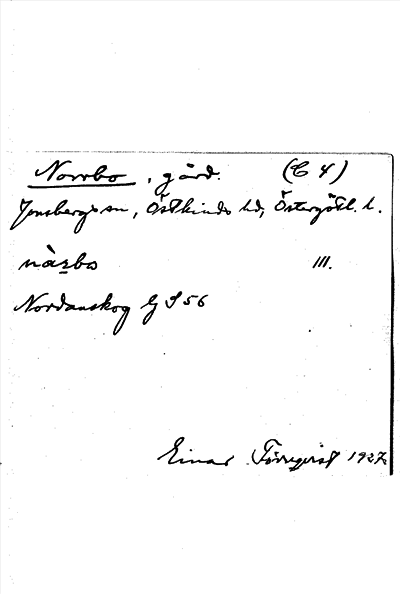 Norrbo, gård. (C 4)
Jonsbergs sn, Östkinds hd, Östergötl. l.
nàrbo III.
Nordanskog Gj S 56
Einar Törnqvist 1927.